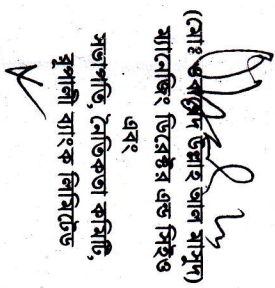 (মোঃ ওবায়েদ উল্লাহ আল মাসুদ)
ম্যানেজিং ডিরেক্টর এন্ড সিইও
এবং
সভাপতি, নৈতিকতা কমিটি,
রূপালী ব্যাংক লিমিটেড